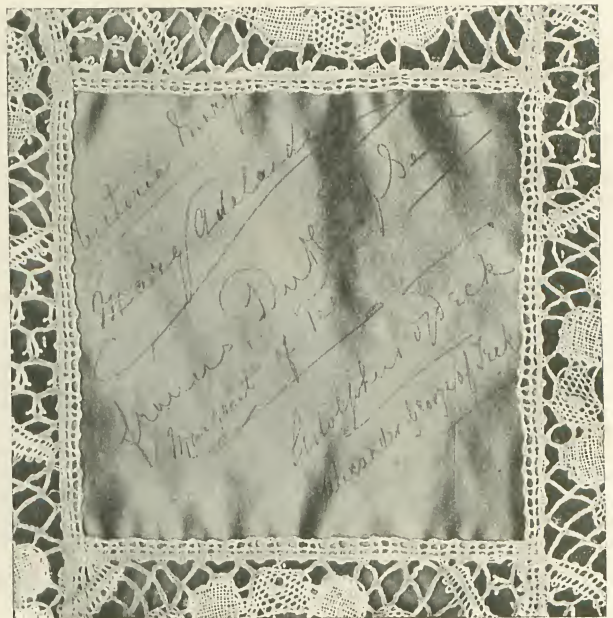 Victoria Mary
Mary Adelaide
Francis, Duke of Teck
Margaret of Teck
Adolphus of Teck
Alexander George of Teck